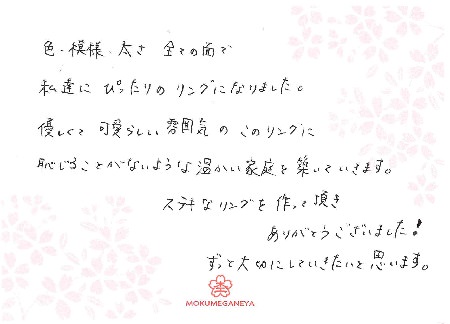 色・模様・太さ 全ての面で
私達に ぴったりの リングになりました。
優しくて 可愛らしい 雰囲気の このリングに
恥じることがないような 温かい 家庭を 築いていきます。
ステキなリングを 作って頂き
ありがとうございました!
ずっと大切にしていきたいと思います。
MOKUMEGANEYA